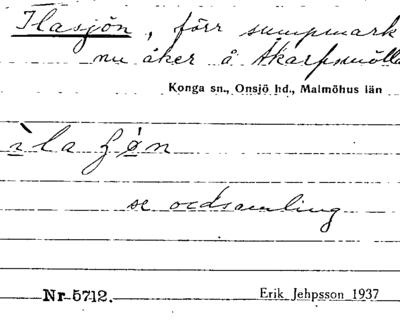 Ilasjön, förr sumpmark
nu åker å Åkarpsmölla
Konga sn., Onsjö hd., Malmöhus län
ìla ʃǿn
se ordsamling
Nr 5712. Erik Jehpsson 1937